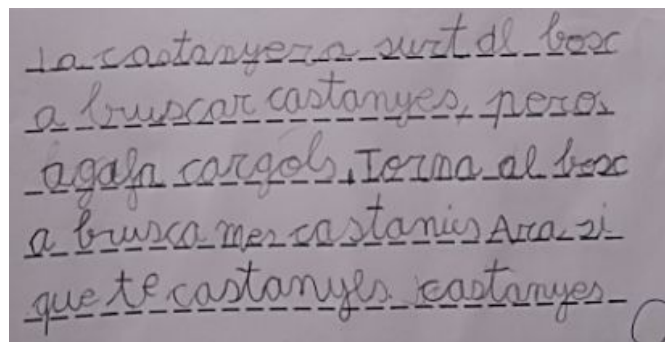 La castanyera surt al bosc
a bruscar castanyes, peros
agafa cargols. Torna al bosc
a brusca mes castanies Ara si
que te castanyes castanyes